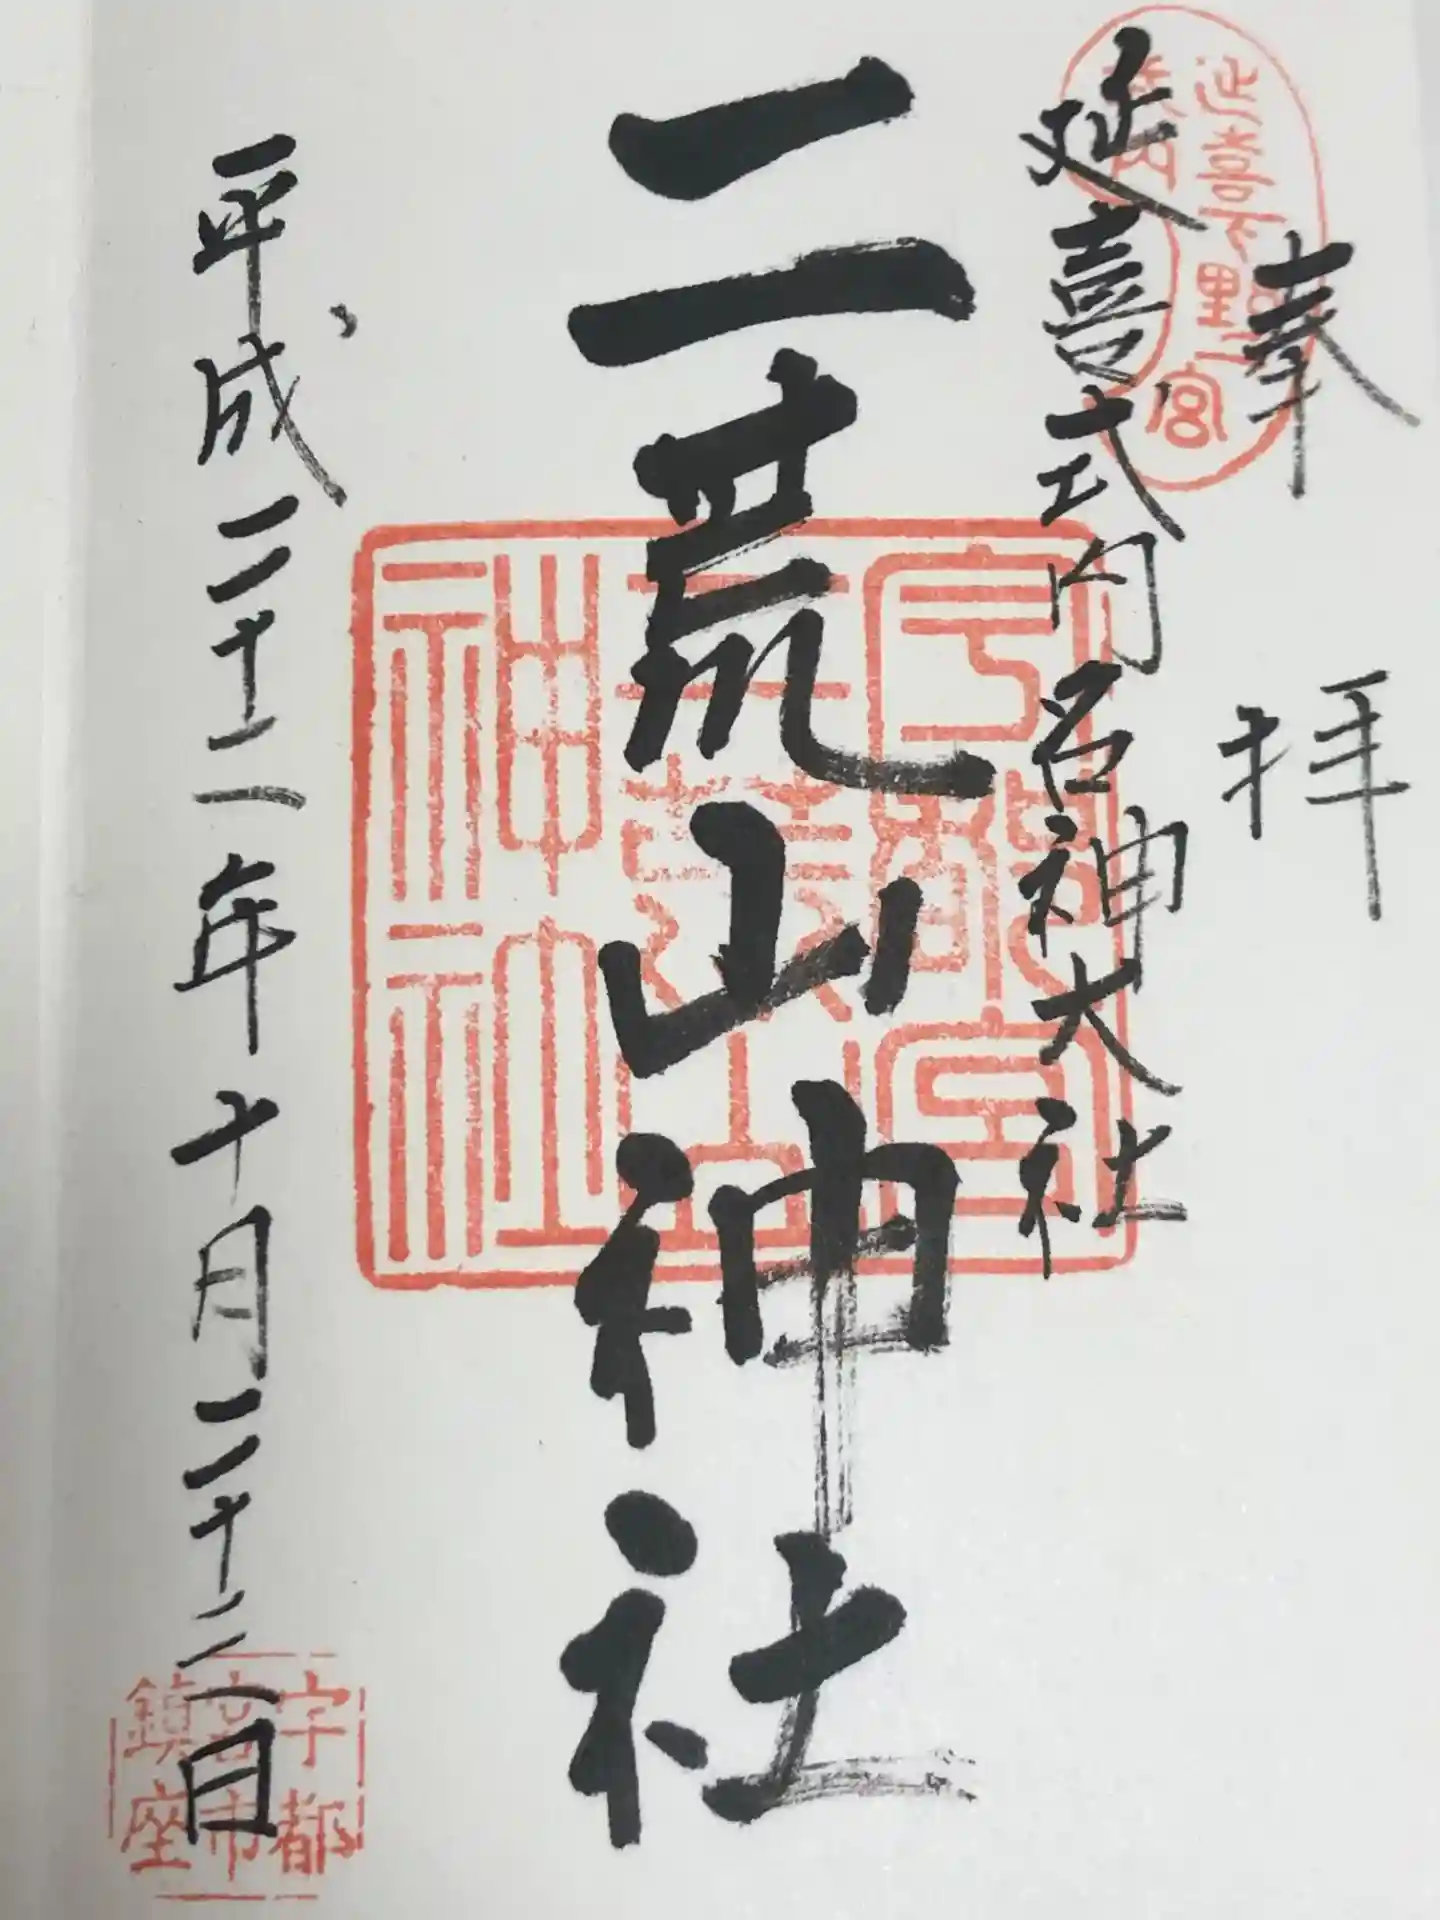 奉拝
延喜式内
下野一宮
延喜式内名神大社
二荒山神社
宇都宮
二荒山
神社
平成二十二年十月二十三日
宇都
宮市
鎮座